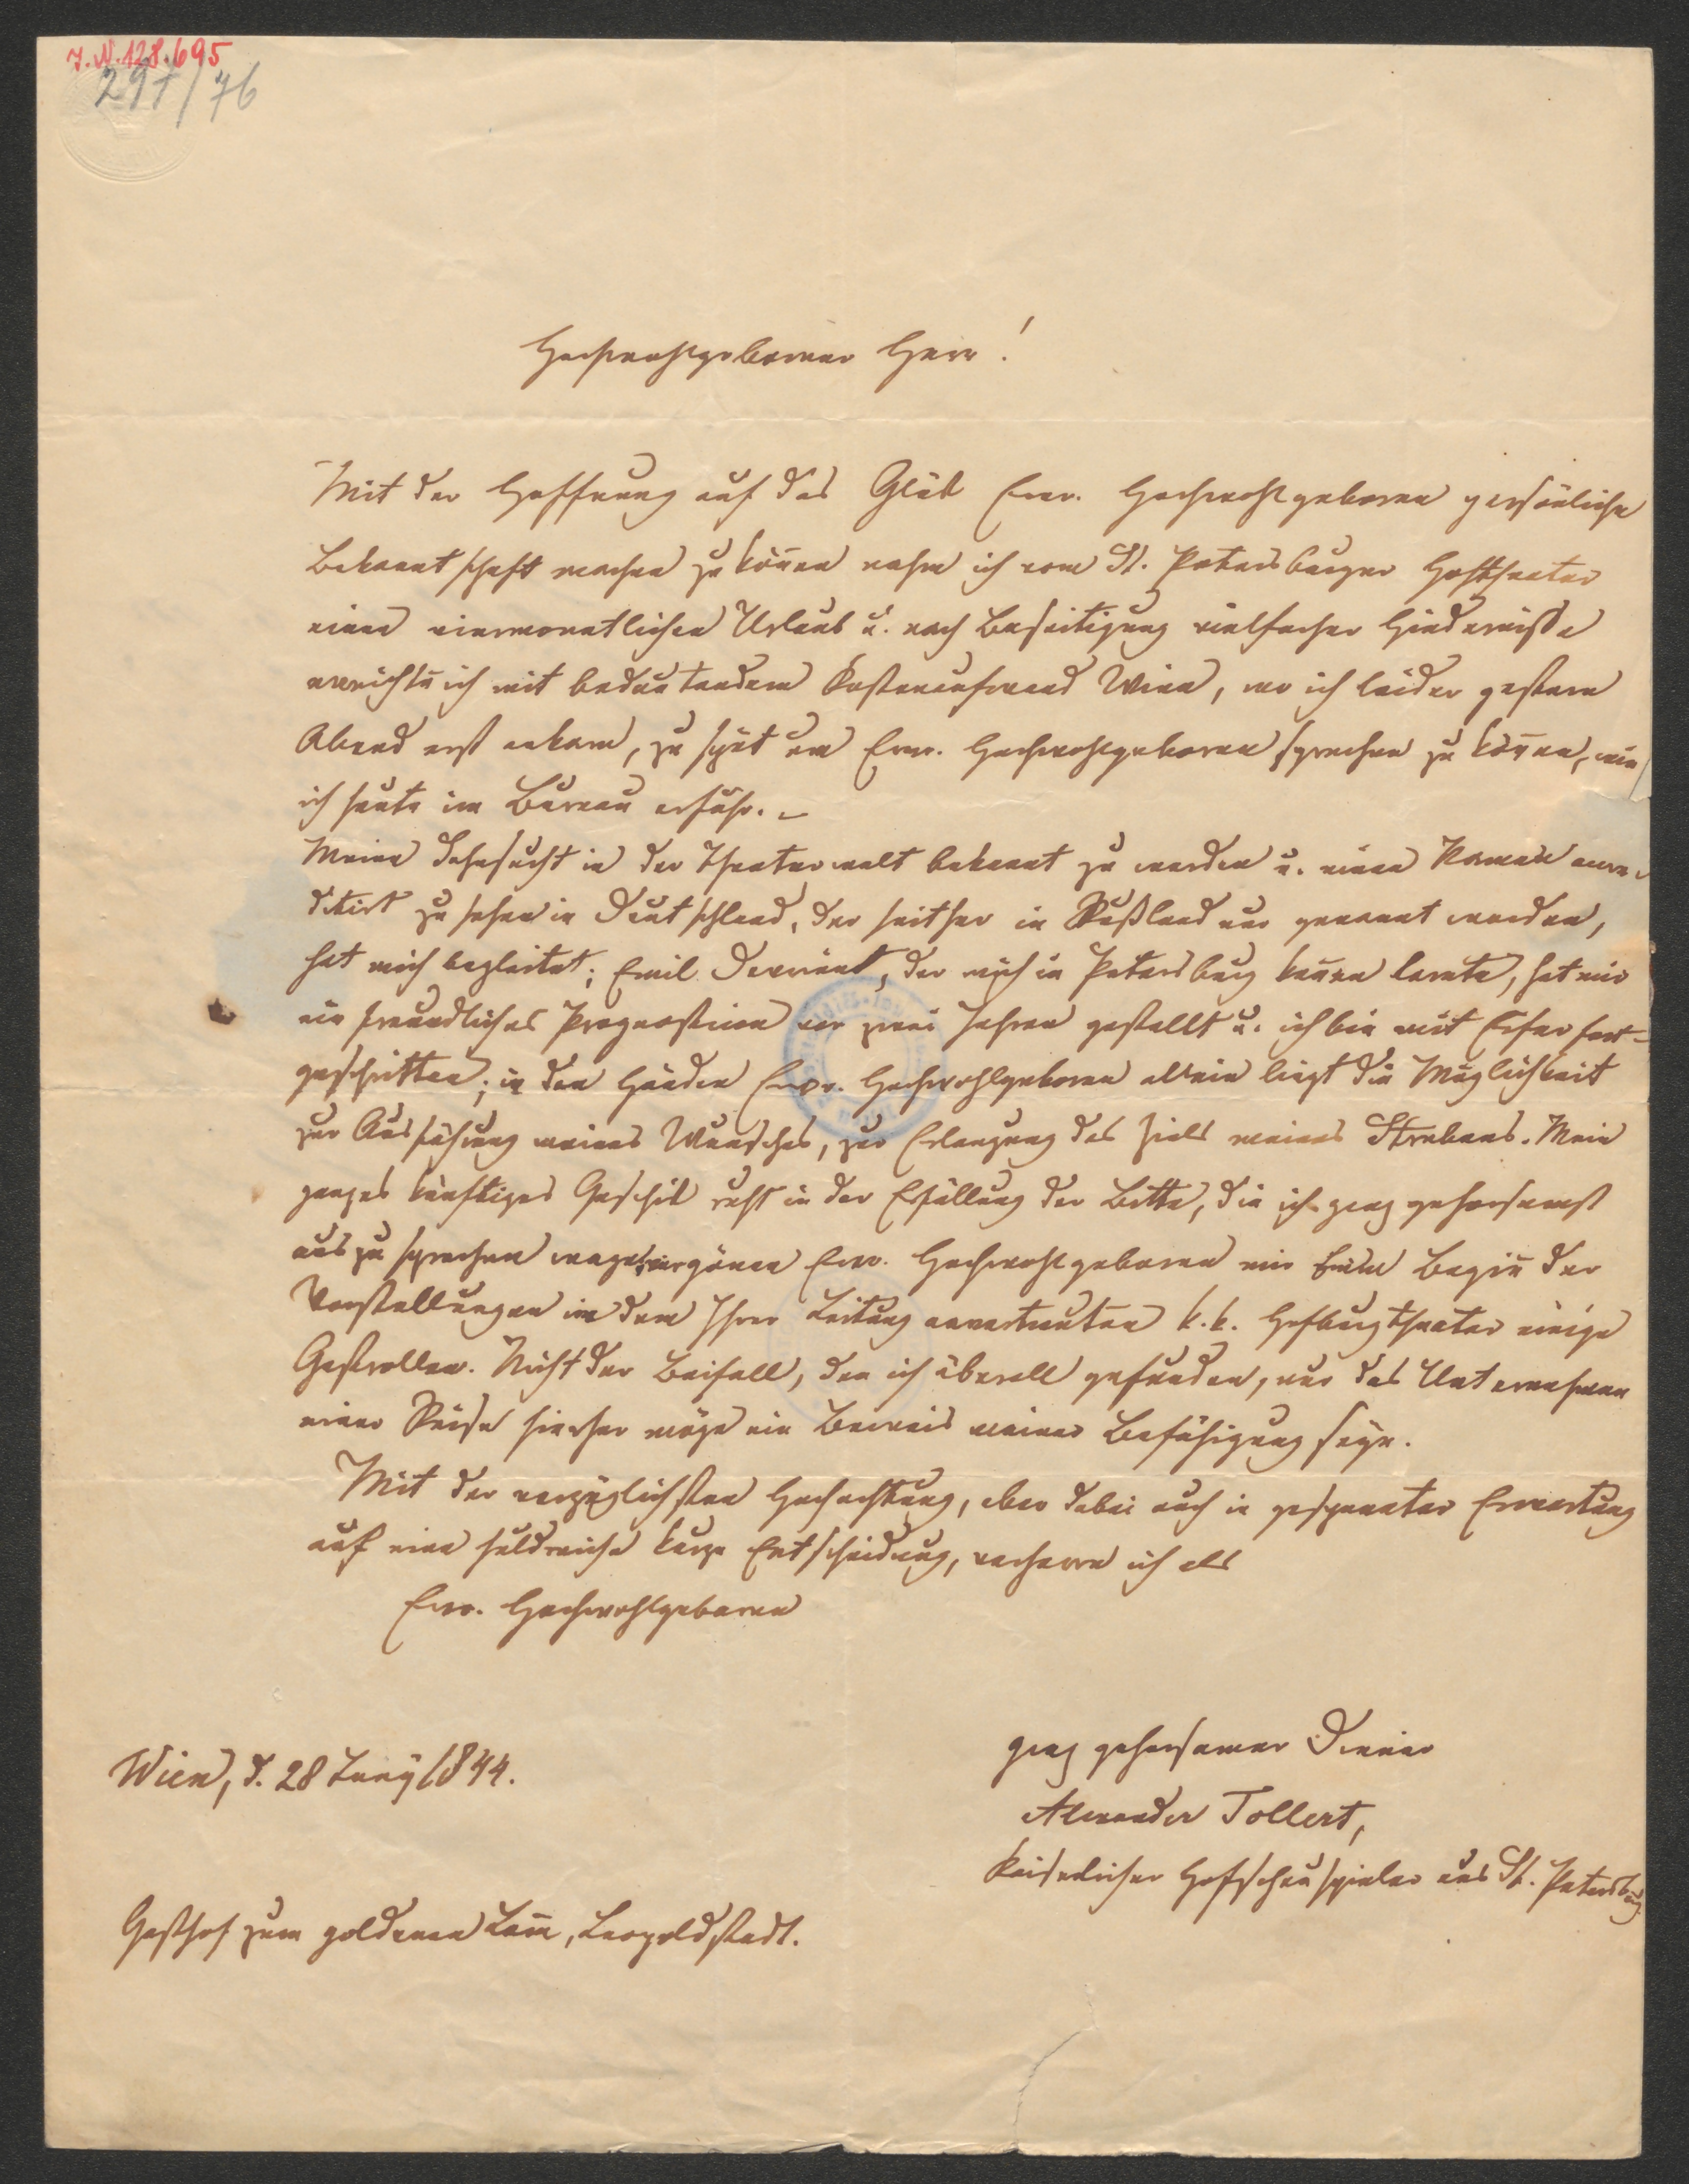 I.N. 128.695
297/76
Hochwohlgeborner Herr!
Mit der Hoffnung auf das Glük Eurer Hochwohlgeboren persönliche
Bekanntschaft machen zu können nahm ich vom St. Petersburger Hoftheater
einen viermonatlichen Urlaub u. nach Beseitigung vielfacher Hindernisse
erreichte ich mit bedeutendem Kostenaufwand Wien, wo ich leider gestern
Abend erst ankam, zu spät um Euer. Hochwohlgeboren sprechen zu können, wie
ich heute im Bureau erfuhr. –
Meine Sehnsucht in der Theaterwelt bekannt zu werden u. einen Namen accre-
ditirt zu sehen in Deutschland, der seither in Rußland nur genannt worden,
hat mich begleitet; Emil Devrient, der mich in Petersburg kennen lernte, hat mir
ein freundliches Prognosticon vor zwei Jahren gestellt u. ich bin mit Eifer fort-
geschritten; in den Händen Euer. Hochwohlgeboren allein liegt die Möglichkeit
zur Ausführung meines Wunsches, zur Erlangung des Ziels meines Strebens. Mein
ganzes künftiges Geschik ruht in der Erfüllung der Bitte, die ich ganz gehorsamst
auszusprechen wage: vergönnen Euer. Hochwohlgeboren mir beim Begin̄ der
Vorstellungen in dem Ihrer Leitung anvertrauten k.k. Hofburgtheater einige
Gastrollen. Nicht der Beifall, den ich überall gefunden, nur das Unternehmen
einer Reise hierher möge ein Beweis meiner Befähigung seyn.
Mit der vorzüglichsten Hochachtung, aber dabei auch in gespannter Erwartung
auf eine huldreiche kurze Entscheidung, verharre ich als
Euer. Hochwohlgeboren
ganz gehorsamer Diener
Wien, d. 28 Juny 1844.
Alexander Tollert,
Kaiserlicher Hofschauspieler aus St. Petersburg
Gasthof zum goldenen Lam̄, Leopoldstadt.